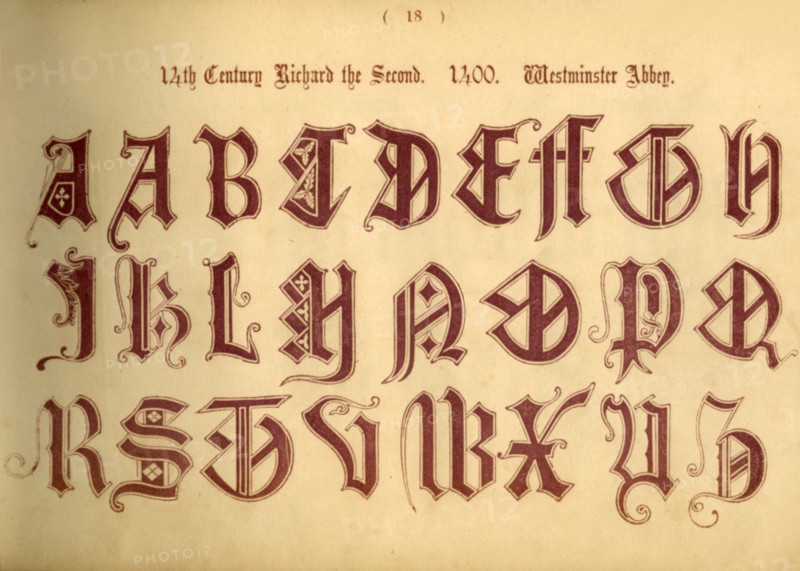 ( 18 )
14th Century Richard the Second. 1400. Westminster Abbey.
A A B C D E F G H
I K L M N O P Q
R S T V W X Y Z
PHOTO12